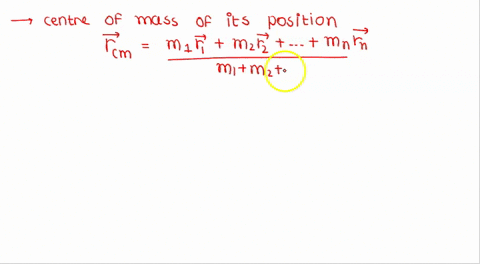 → centre of mass of its position
r⃗cm = m1r⃗1 + m2r⃗2 + ... + mnr⃗n
m1 + m2 +.